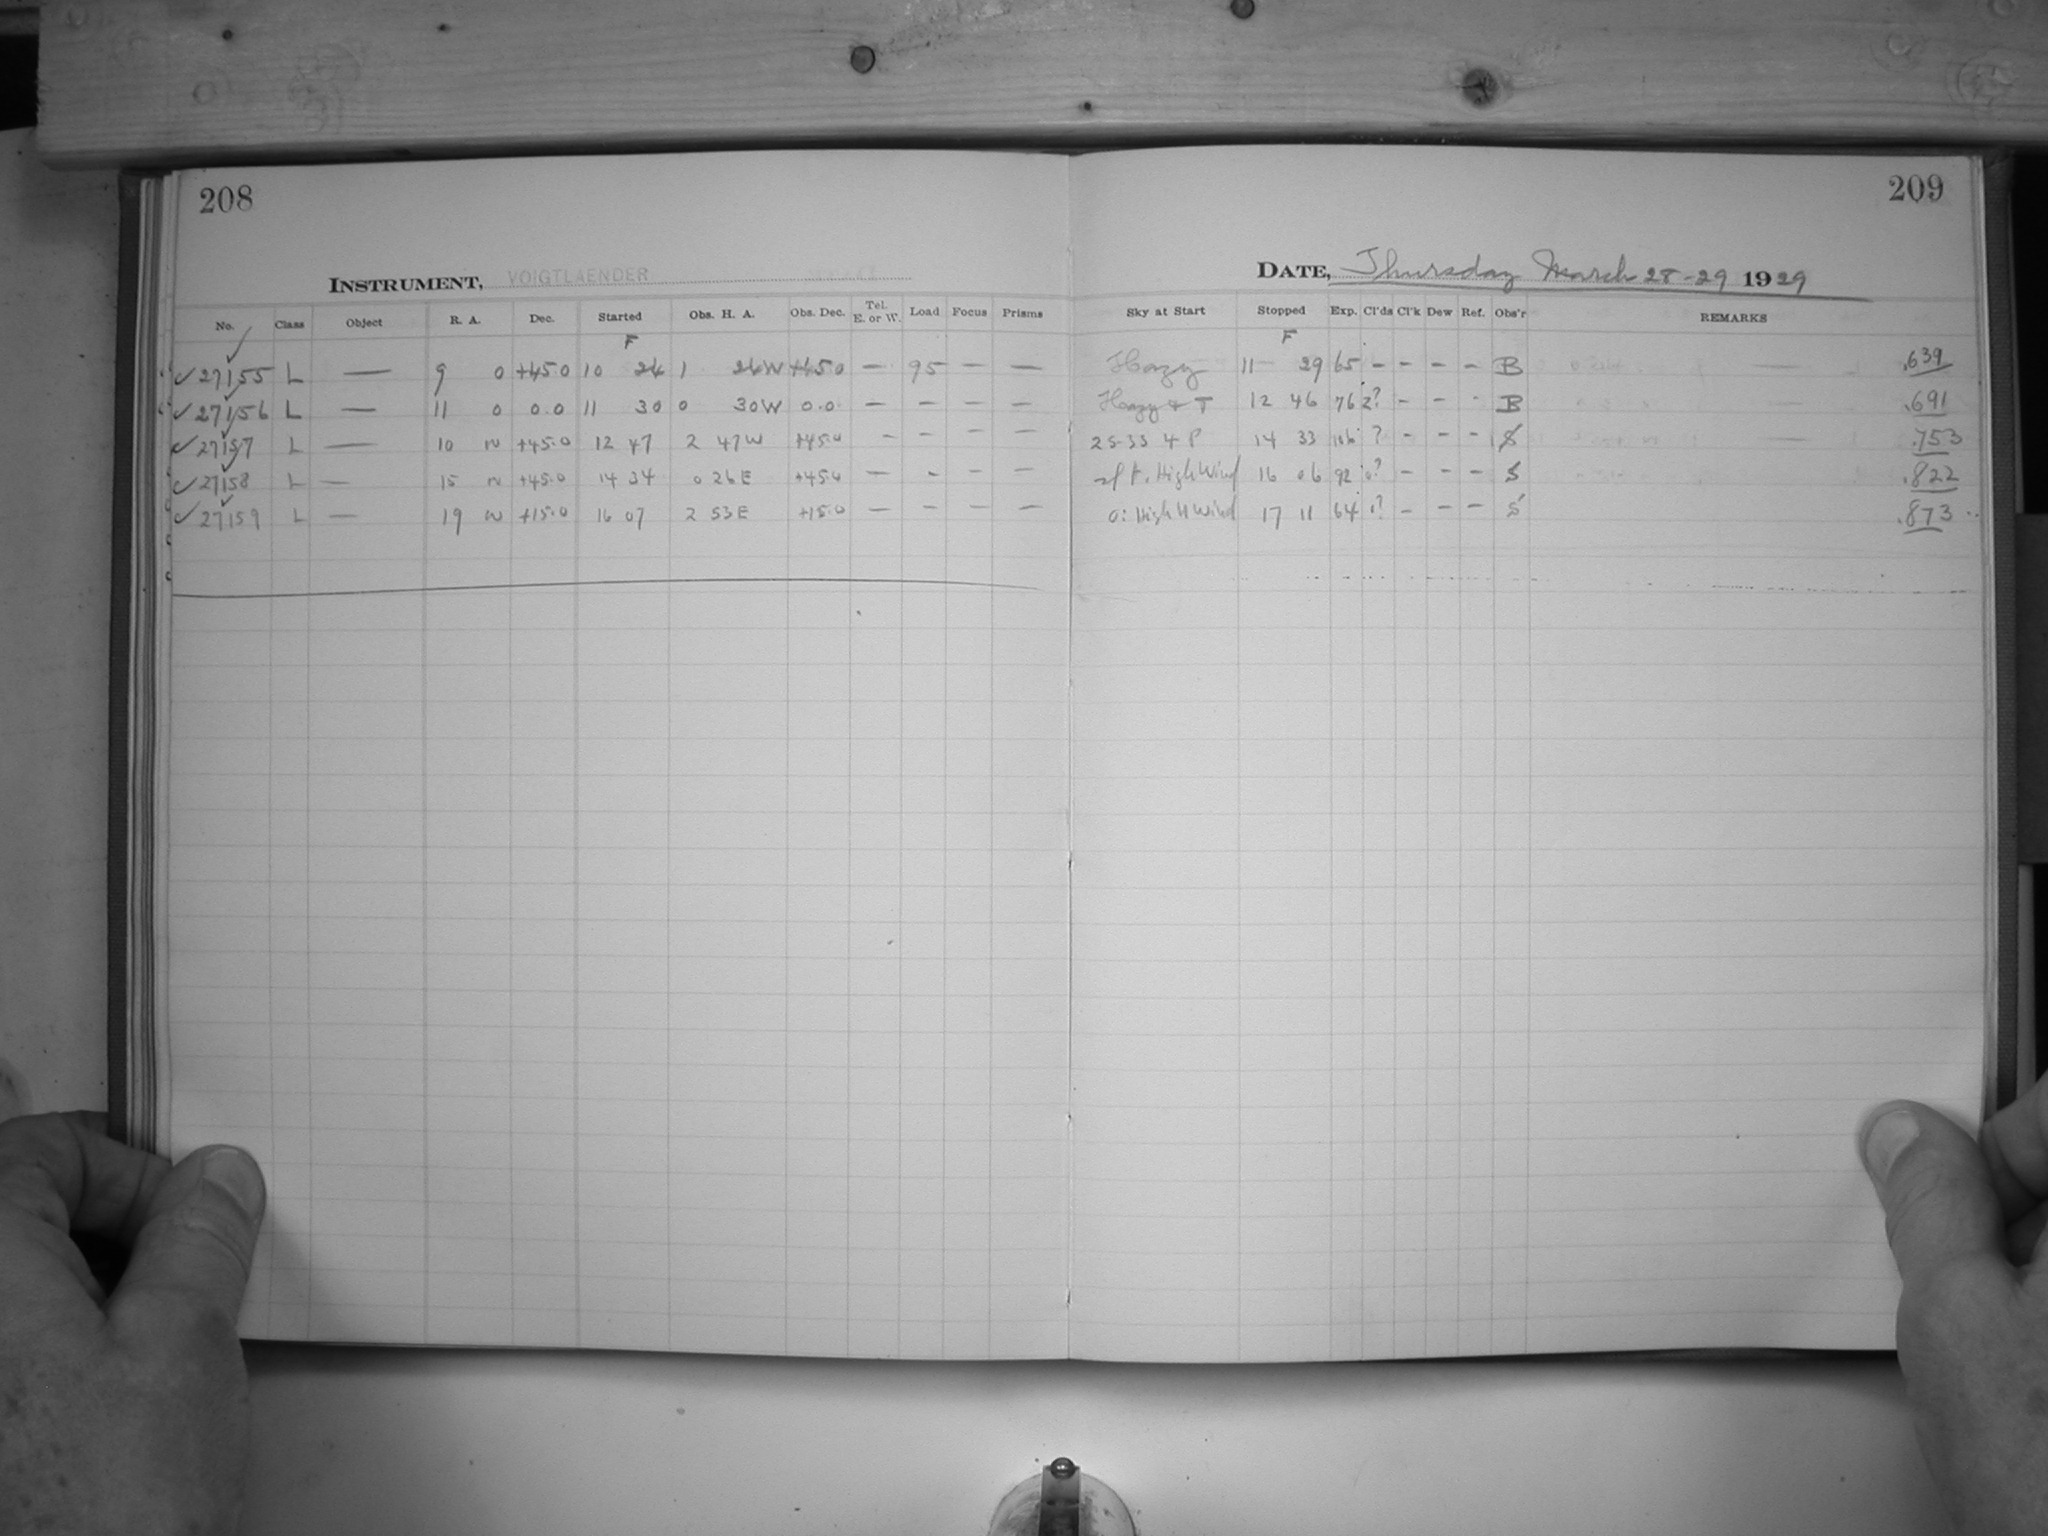 208
209
INSTRUMENT, VOIGTLAENDER
DATE, Thursday March 28-29 1929
No. Class Object R. A. Dec. Started Obs. H. A. Obs. Dec. Tel. E. or W. Load Focus Prisms Sky at Start Stopped Exp. Cl'ds Cl'k Dew Ref. Obs'r REMARKS
F F
✓27155 L — 9 0 +45.0 10 24 1 24W +45.0 — 95 — — Hazy 11 29 65 - - - - B .639
✓27156 L — 11 0 0.0 11 30 0 30W 0.0 — — — — Hazy + T 12 46 76 2? - - - B .691
✓27157 L — 10 N +45.0 12 47 2 47W +45.0 — — — — 25-35 4 P 14 33 106 ? - - - S .753
✓27158 L — 15 N +45.0 14 34 0 26E +45.0 — - — — High Wind 16 06 92 0? - - - S .822
✓27159 L — 19 N +15.0 16 07 2 53E +15.0 — — — — 0: High Wind 17 11 64 1? - - - S .873